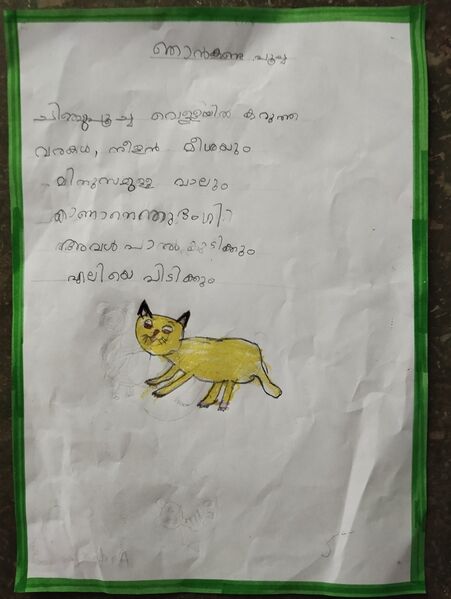 ഞാൻകണ്ട പൂച്ച
ചിഞ്ചുപൂച്ച വെള്ളയിൽ കറുത്ത
വരകൾ, നീളൻ മീശയും
മിനുസമുള്ള വാലും
കാണാനെന്തുഭംഗി
അവൾ പാൽ കുടിക്കും
എലിയെ പിടിക്കും